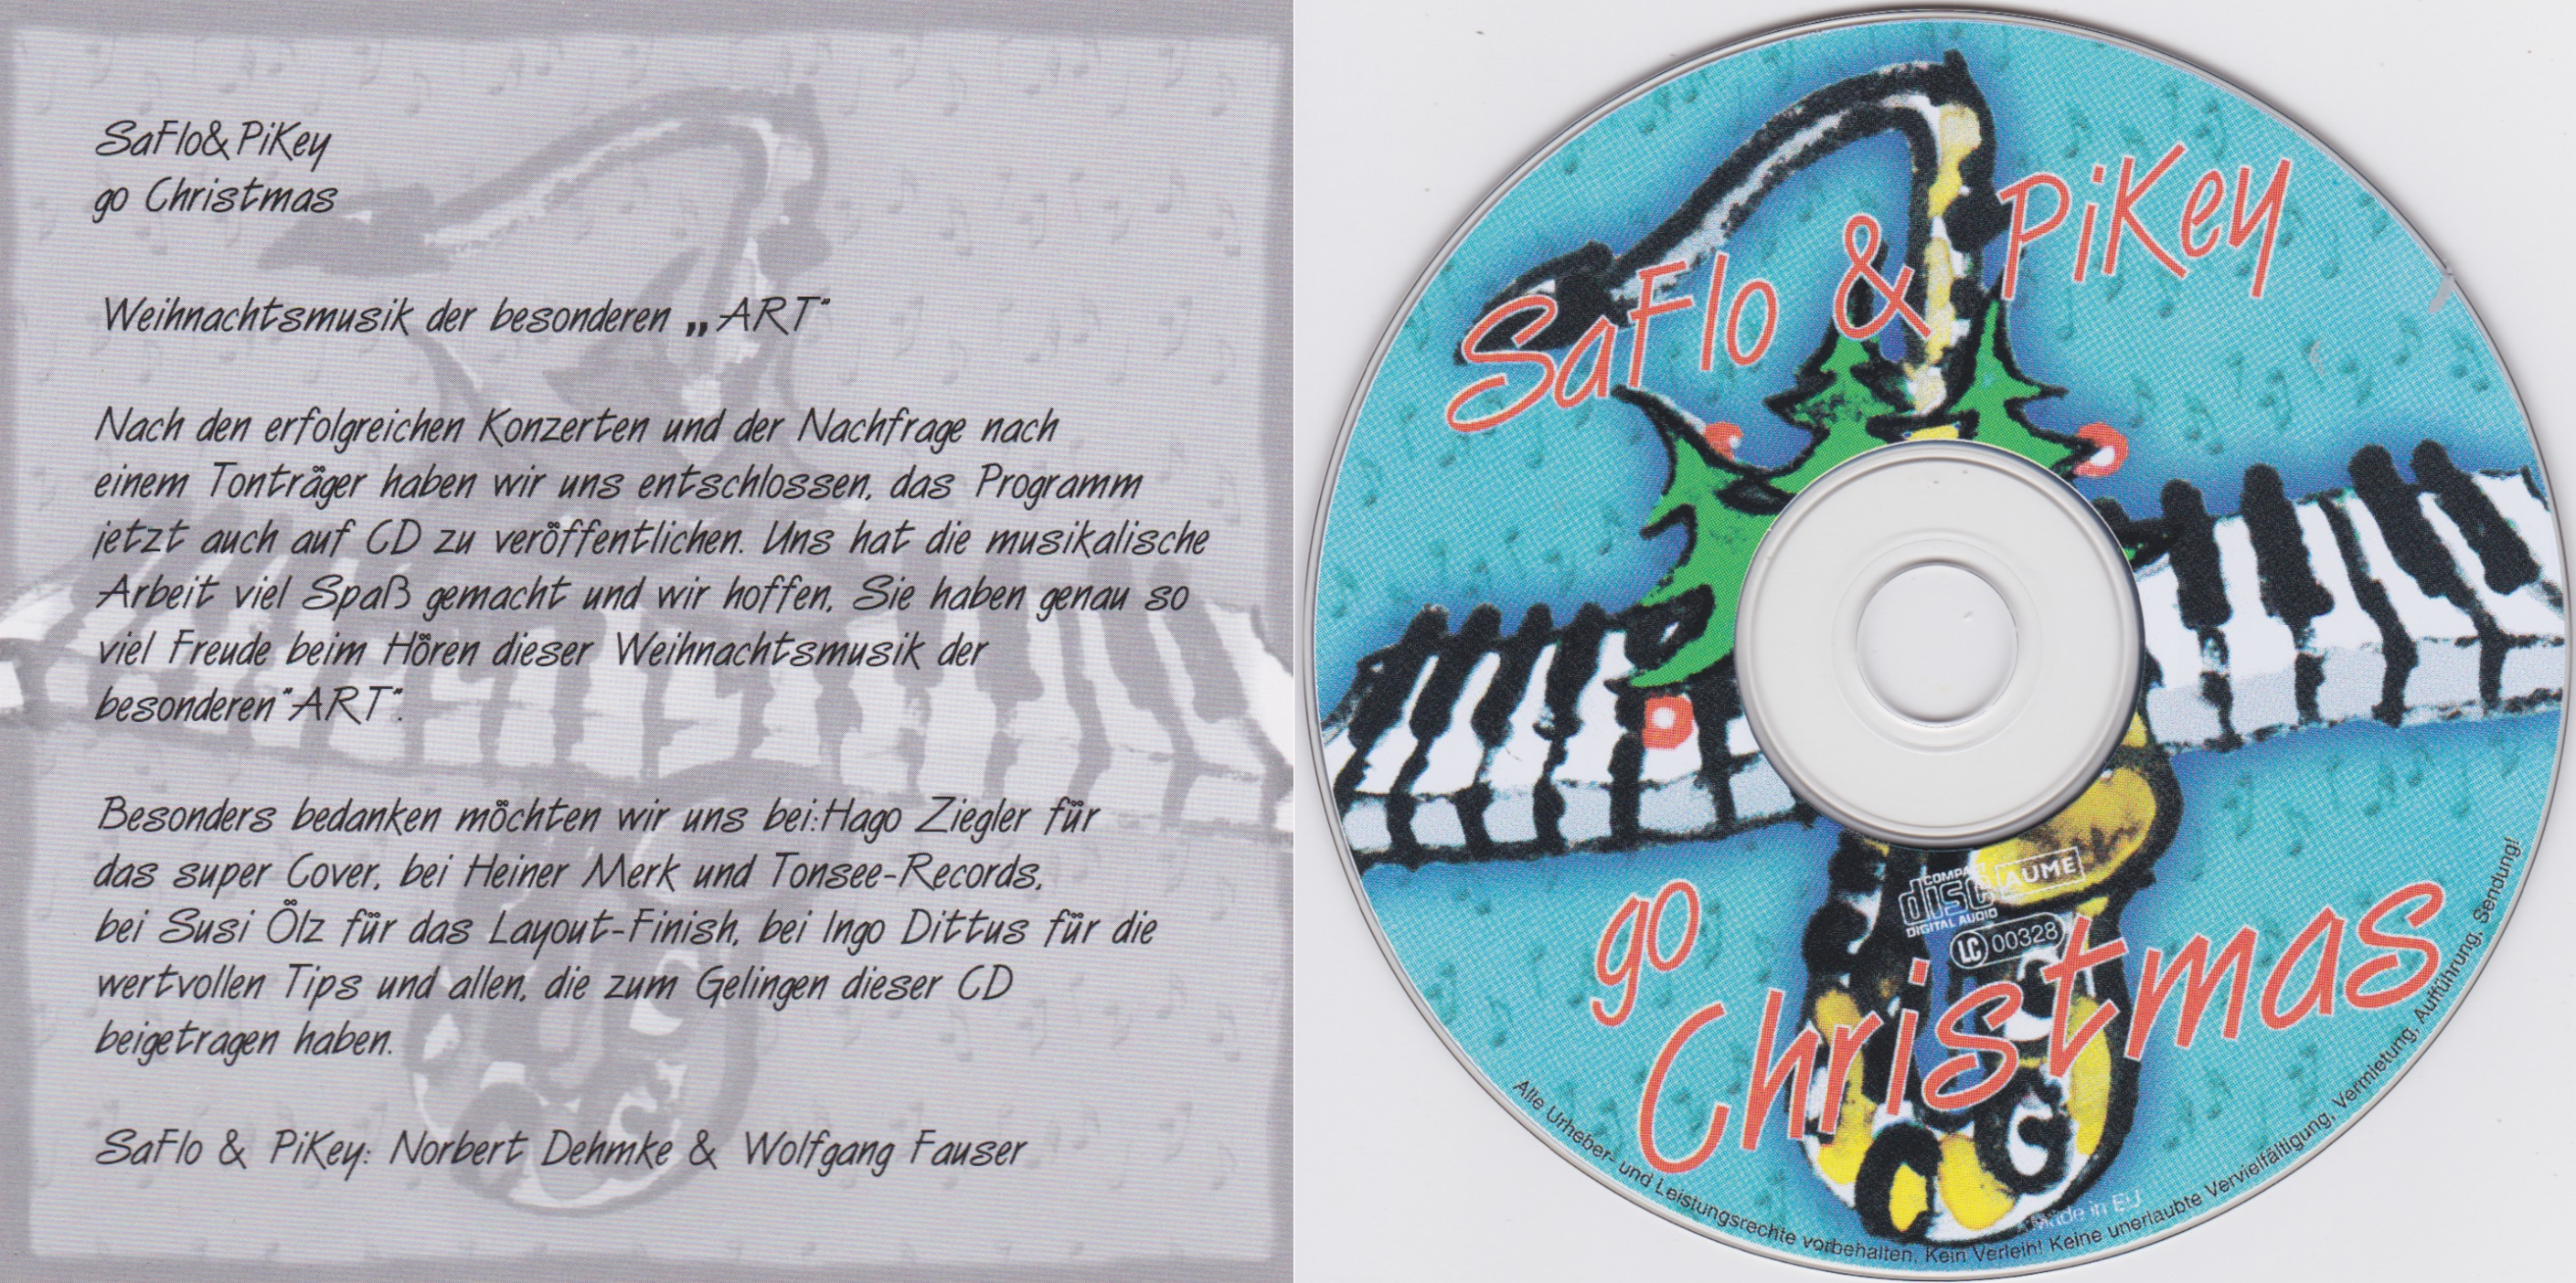 SaFlo&PiKey
go Christmas
Weihnachtsmusik der besonderen „ART"
Nach den erfolgreichen Konzerten und der Nachfrage nach
einem Tonträger haben wir uns entschlossen, das Programm
jetzt auch auf CD zu veröffentlichen. Uns hat die musikalische
Arbeit viel Spaß gemacht und wir hoffen, Sie haben genau so
viel Freude beim Hören dieser Weihnachtsmusik der
besonderen"ART".
Besonders bedanken möchten wir uns bei:Hago Ziegler für
das super Cover, bei Heiner Merk und Tonsee-Records,
bei Susi Ölz für das Layout-Finish, bei Ingo Dittus für die
wertvollen Tips und allen, die zum Gelingen dieser CD
beigetragen haben.
SaFlo & PiKey: Norbert Dehmke & Wolfgang Fauser
SaFlo & PiKey
go
Christmas
disc
DIGITAL AUDIO
AUME
LC 00328
Made in EU
Alle Urheber- und Leistungsrechte vorbehalten. Kein Verleih! Keine unerlaubte Vervielfältigung, Vermietung, Aufführung, Sendung!